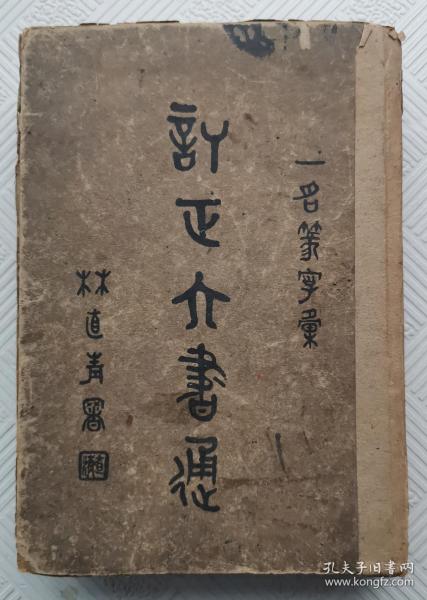 一名篆字彙
訂正六書通
林直署
孔夫子旧书网
www.kongfz.com